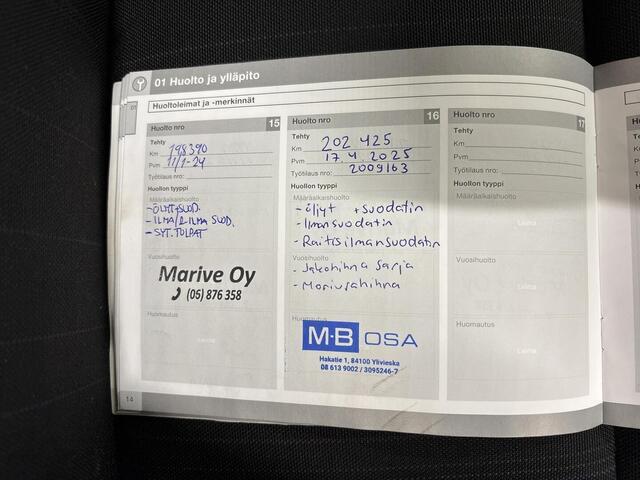 01 Huolto ja ylläpito
Huoltoleimat ja -merkinnät
01
Huolto nro 15
Tehty
Km 198390
Pvm 11/1-24
Työtilaus nro:
Huollon tyyppi
Määräaikaishuolto
- ÖLJYT+SUOD.
- ILMA/R.ILMA SUOD.
- SYT. TULPAT
Vuosihuolto
Marive Oy
(05) 876 358
Huomautus
Leima
14
Huolto nro 16
Tehty
Km 202 425
Pvm 17.4.2025
Työtilaus nro: 2009163
Huollon tyyppi
Määräaikaishuolto
- öljyt +suodatin
- Ilmansuodatin
- Raitisilmansuodatin
Vuosihuolto
- Jakohihna sarja
- Moniurahihna
Huomautus
M-B OSA
Hakatie 1, 84100 Ylivieska
08 613 9002 / 3095246-7
Huolto nro 17
Tehty
Km
Pvm
Työtilaus nro:
Huollon tyyppi
Määräaikaishuolto
Vuosihuolto
Leima
Huomautus
Leima